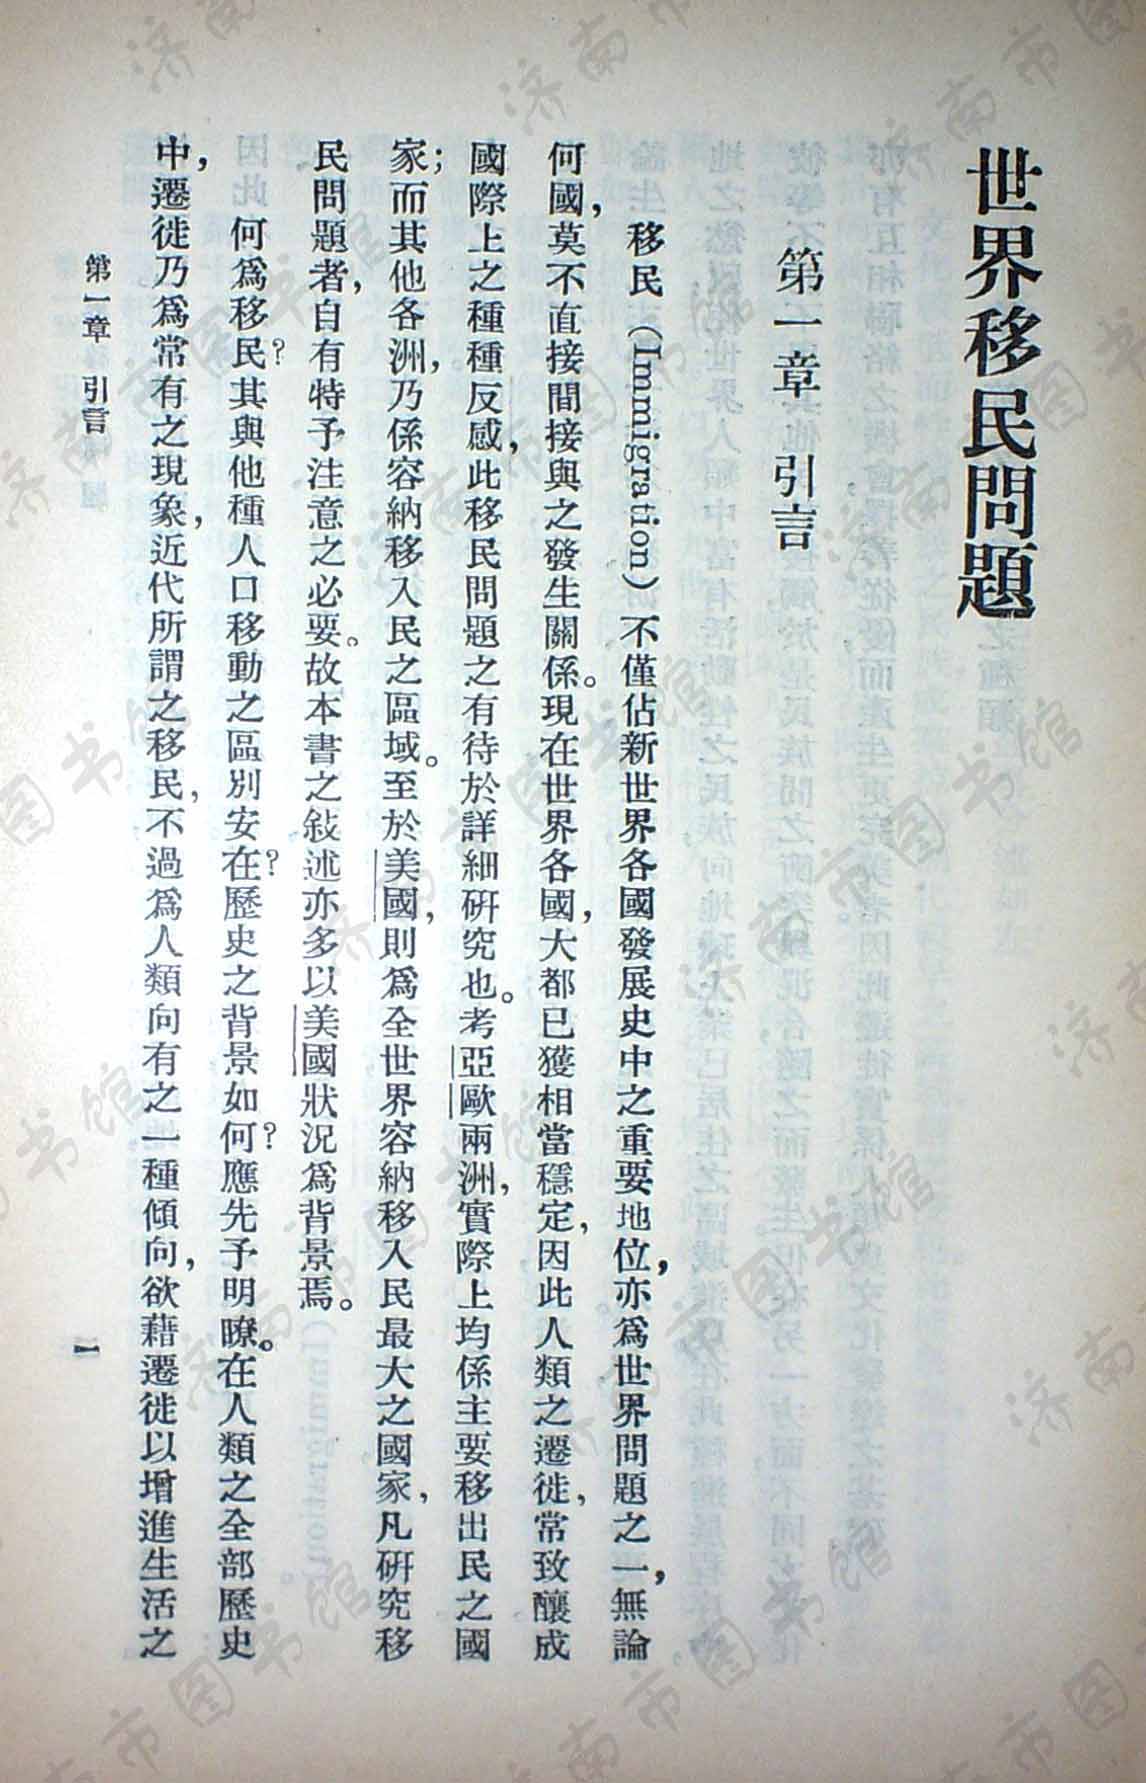 世界移民問題
第一章 引言
移民（Immigration）不僅佔新世界各國發展史中之重要地位，亦爲世界問題之一，無論
何國，莫不直接間接與之發生關係。現在世界各國，大都已獲相當穩定，因此人類之遷徙，常致釀成
國際上之種種反感，此移民問題之有待於詳細研究也。考亞歐兩洲，實際上均係主要移出民之國
家；而其他各洲，乃係容納移入民之區域。至於美國，則爲全世界容納移入民最大之國家，凡研究移
民問題者，自有特予注意之必要。故本書之敍述亦多以美國狀況爲背景焉。
何爲移民？其與他種人口移動之區別安在？歷史之背景如何？應先予明瞭。在人類之全部歷史
中，遷徙乃爲常有之現象，近代所謂之移民，不過爲人類向有之一種傾向，欲藉遷徙以增進生活之
第一章 引言
一
济南市图书馆